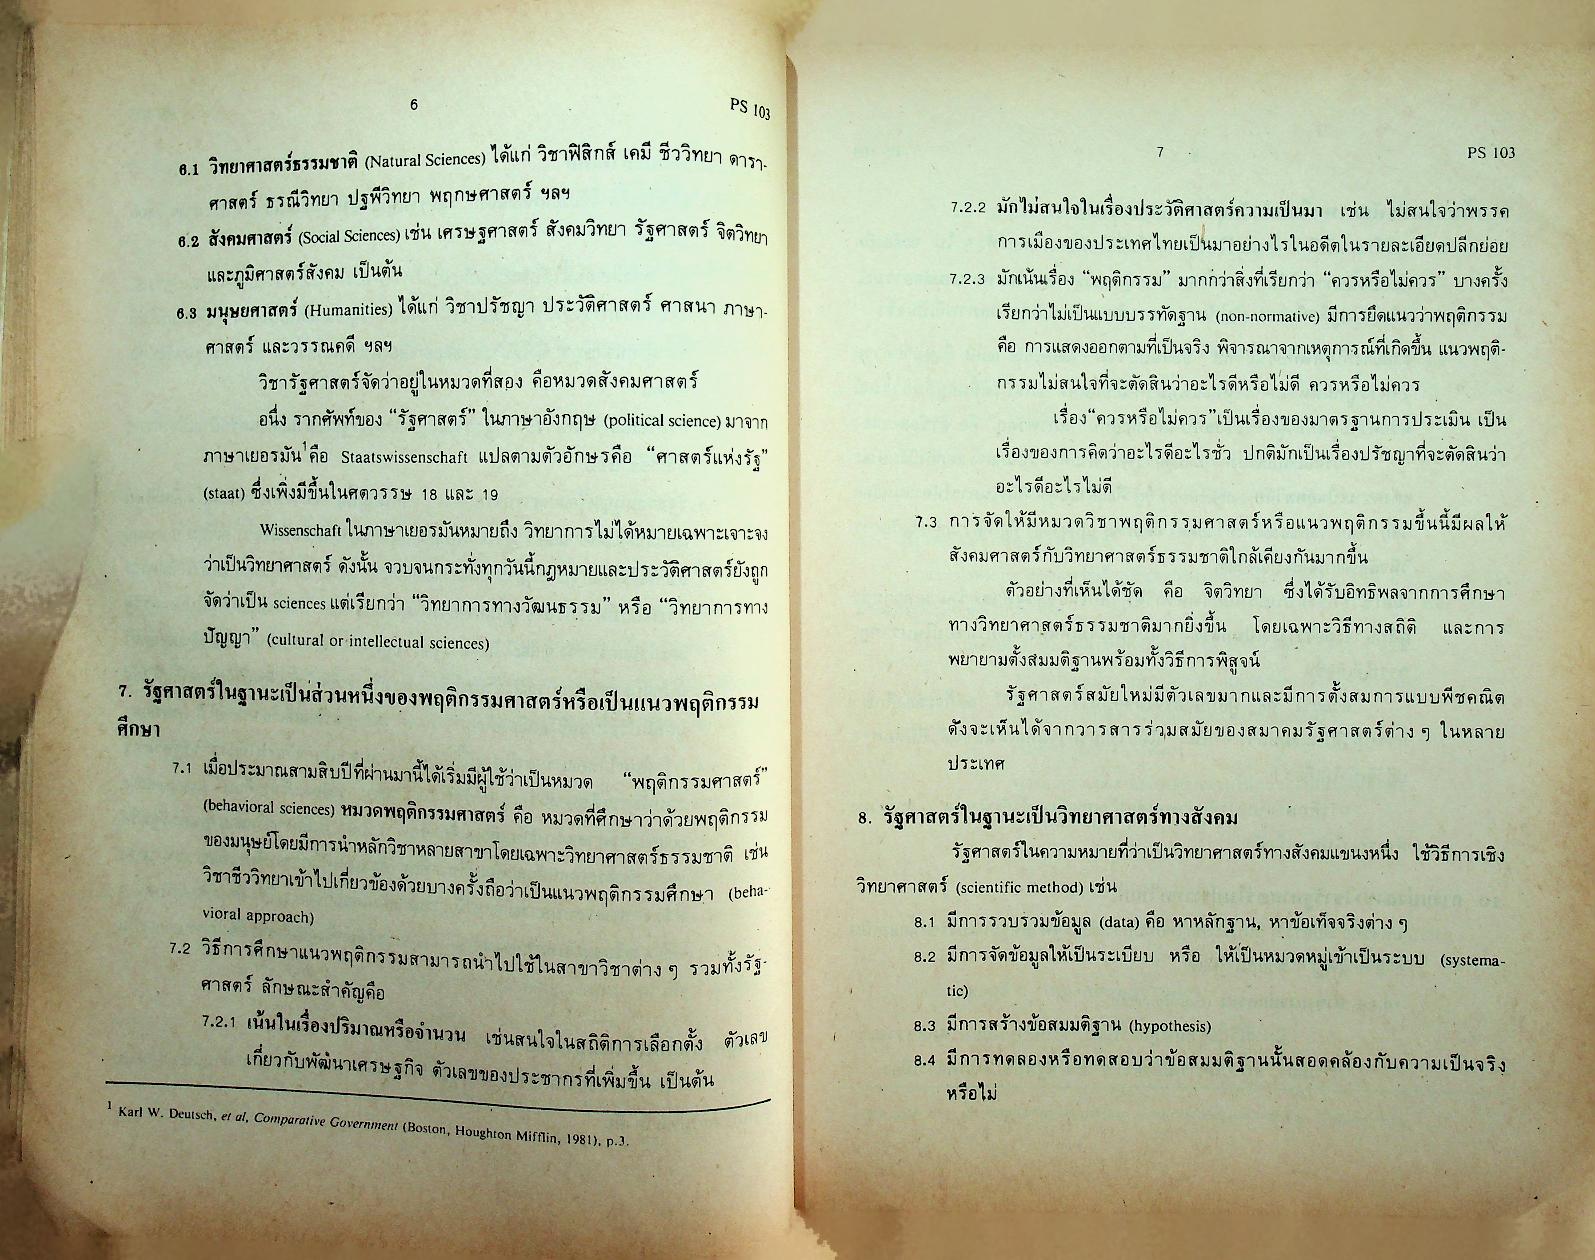 6
PS 103
6.1 วิทยาศาสตร์ธรรมชาติ (Natural Sciences) ได้แก่ วิชาฟิสิกส์ เคมี ชีววิทยา ดารา-
ศาสตร์ ธรณีวิทยา ปฐพีวิทยา พฤกษศาสตร์ ฯลฯ
6.2 สังคมศาสตร์ (Social Sciences) เช่น เศรษฐศาสตร์ สังคมวิทยา รัฐศาสตร์ จิตวิทยา
และภูมิศาสตร์สังคม เป็นต้น
6.3 มนุษยศาสตร์ (Humanities) ได้แก่ วิชาปรัชญา ประวัติศาสตร์ ศาสนา ภาษา-
ศาสตร์ และวรรณคดี ฯลฯ
วิชารัฐศาสตร์จัดว่าอยู่ในหมวดที่สอง คือหมวดสังคมศาสตร์
อนึ่ง รากศัพท์ของ “รัฐศาสตร์” ในภาษาอังกฤษ (political science) มาจาก
ภาษาเยอรมัน¹คือ Staatswissenschaft แปลตามตัวอักษรคือ “ศาสตร์แห่งรัฐ”
(staat) ซึ่งเพิ่งมีขึ้นในศตวรรษ 18 และ 19
Wissenschaft ในภาษาเยอรมันหมายถึง วิทยาการไม่ได้หมายเฉพาะเจาะจง
ว่าเป็นวิทยาศาสตร์ ดังนั้น จวบจนกระทั่งทุกวันนี้กฎหมายและประวัติศาสตร์ยังถูก
จัดว่าเป็น sciences แต่เรียกว่า “วิทยาการทางวัฒนธรรม” หรือ “วิทยาการทาง
ปัญญา” (cultural or intellectual sciences)
7. รัฐศาสตร์ในฐานะเป็นส่วนหนึ่งของพฤติกรรมศาสตร์หรือเป็นแนวพฤติกรรม
ศึกษา
7.1 เมื่อประมาณสามสิบปีที่ผ่านมานี้ได้เริ่มมีผู้ใช้ว่าเป็นหมวด “พฤติกรรมศาสตร์”
(behavioral sciences) หมวดพฤติกรรมศาสตร์ คือ หมวดที่ศึกษาว่าด้วยพฤติกรรม
ของมนุษย์โดยมีการนำหลักวิชาหลายสาขาโดยเฉพาะวิทยาศาสตร์ธรรมชาติ เช่น
วิชาชีววิทยาเข้าไปเกี่ยวข้องด้วยบางครั้งถือว่าเป็นแนวพฤติกรรมศึกษา (beha-
vioral approach)
7.2 วิธีการศึกษาแนวพฤติกรรมสามารถนำไปใช้ในสาขาวิชาต่าง ๆ รวมทั้งรัฐ-
ศาสตร์ ลักษณะสำคัญคือ
7.2.1 เน้นในเรื่องปริมาณหรือจำนวน เช่นสนใจในสถิติการเลือกตั้ง ตัวเลข
เกี่ยวกับพัฒนาเศรษฐกิจ ตัวเลขของประชากรที่เพิ่มขึ้น เป็นต้น
¹ Karl W. Deutsch, et al, Comparative Government (Boston, Houghton Mifflin, 1981), p.3.
7
PS 103
7.2.2 มักไม่สนใจในเรื่องประวัติศาสตร์ความเป็นมา เช่น ไม่สนใจว่าพรรค
การเมืองของประเทศไทยเป็นมาอย่างไรในอดีตในรายละเอียดปลีกย่อย
7.2.3 มักเน้นเรื่อง “พฤติกรรม” มากกว่าสิ่งที่เรียกว่า “ควรหรือไม่ควร” บางครั้ง
เรียกว่าไม่เป็นแบบบรรทัดฐาน (non-normative) มีการยึดแนวว่าพฤติกรรม
คือ การแสดงออกตามที่เป็นจริง พิจารณาจากเหตุการณ์ที่เกิดขึ้น แนวพฤติ-
กรรมไม่สนใจที่จะตัดสินว่าอะไรดีหรือไม่ดี ควรหรือไม่ควร
เรื่อง“ควรหรือไม่ควร”เป็นเรื่องของมาตรฐานการประเมิน เป็น
เรื่องของการคิดว่าอะไรดีอะไรชั่ว ปกติมักเป็นเรื่องปรัชญาที่จะตัดสินว่า
อะไรดีอะไรไม่ดี
7.3 การจัดให้มีหมวดวิชาพฤติกรรมศาสตร์หรือแนวพฤติกรรมขึ้นนี้มีผลให้
สังคมศาสตร์กับวิทยาศาสตร์ธรรมชาติใกล้เคียงกันมากขึ้น
ตัวอย่างที่เห็นได้ชัด คือ จิตวิทยา ซึ่งได้รับอิทธิพลจากการศึกษา
ทางวิทยาศาสตร์ธรรมชาติมากยิ่งขึ้น โดยเฉพาะวิธีทางสถิติ และการ
พยายามตั้งสมมติฐานพร้อมทั้งวิธีการพิสูจน์
รัฐศาสตร์สมัยใหม่มีตัวเลขมากและมีการตั้งสมการแบบพีชคณิต
ดังจะเห็นได้จากวารสารร่วมสมัยของสมาคมรัฐศาสตร์ต่าง ๆ ในหลาย
ประเทศ
8. รัฐศาสตร์ในฐานะเป็นวิทยาศาสตร์ทางสังคม
รัฐศาสตร์ในความหมายที่ว่าเป็นวิทยาศาสตร์ทางสังคมแขนงหนึ่ง ใช้วิธีการเชิง
วิทยาศาสตร์ (scientific method) เช่น
8.1 มีการรวบรวมข้อมูล (data) คือ หาหลักฐาน, หาข้อเท็จจริงต่าง ๆ
8.2 มีการจัดข้อมูลให้เป็นระเบียบ หรือ ให้เป็นหมวดหมู่เข้าเป็นระบบ (systema-
tic)
8.3 มีการสร้างข้อสมมติฐาน (hypothesis)
8.4 มีการทดลองหรือทดสอบว่าข้อสมมติฐานนั้นสอดคล้องกับความเป็นจริง
หรือไม่